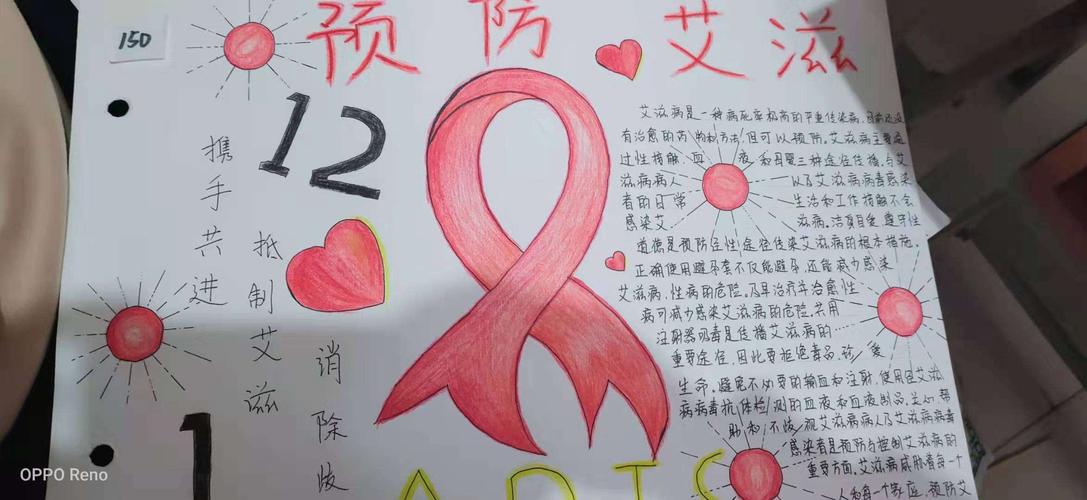 预防艾滋
150
12
携手共进
抵制艾滋
消除歧
1
ADIS
艾滋病是一种病死率极高的严重传染病,目前还没
有治愈的药物和方法,但可以预防,艾滋病主要通
过性接触、血 液 和母婴三种途径传播,与艾
滋病病人 以及艾滋病病毒感染
者的日常 生活和工作接触不会
感染艾 滋病,洁身自爱,遵守性
道德是预防经性途径传染艾滋病的根本措施,
正确使用避孕套不仅能避孕,还能减少感染
艾滋病,性病的危险,及早治疗并治愈性
病可减少感染艾滋病的危险,共用
注射器吸毒是传播艾滋病的
重要途径,因此要拒绝毒品,珍 爱
生命,避免不必要的输血和注射,使用经艾滋
病病毒抗体检测的血液和血液制品,关心 帮
助和不歧视艾滋病病人及艾滋病病毒
感染者是预防与控制艾滋病的
重要方面,艾滋病威胁着每一个
人和每一个家庭,预防艾
OPPO Reno